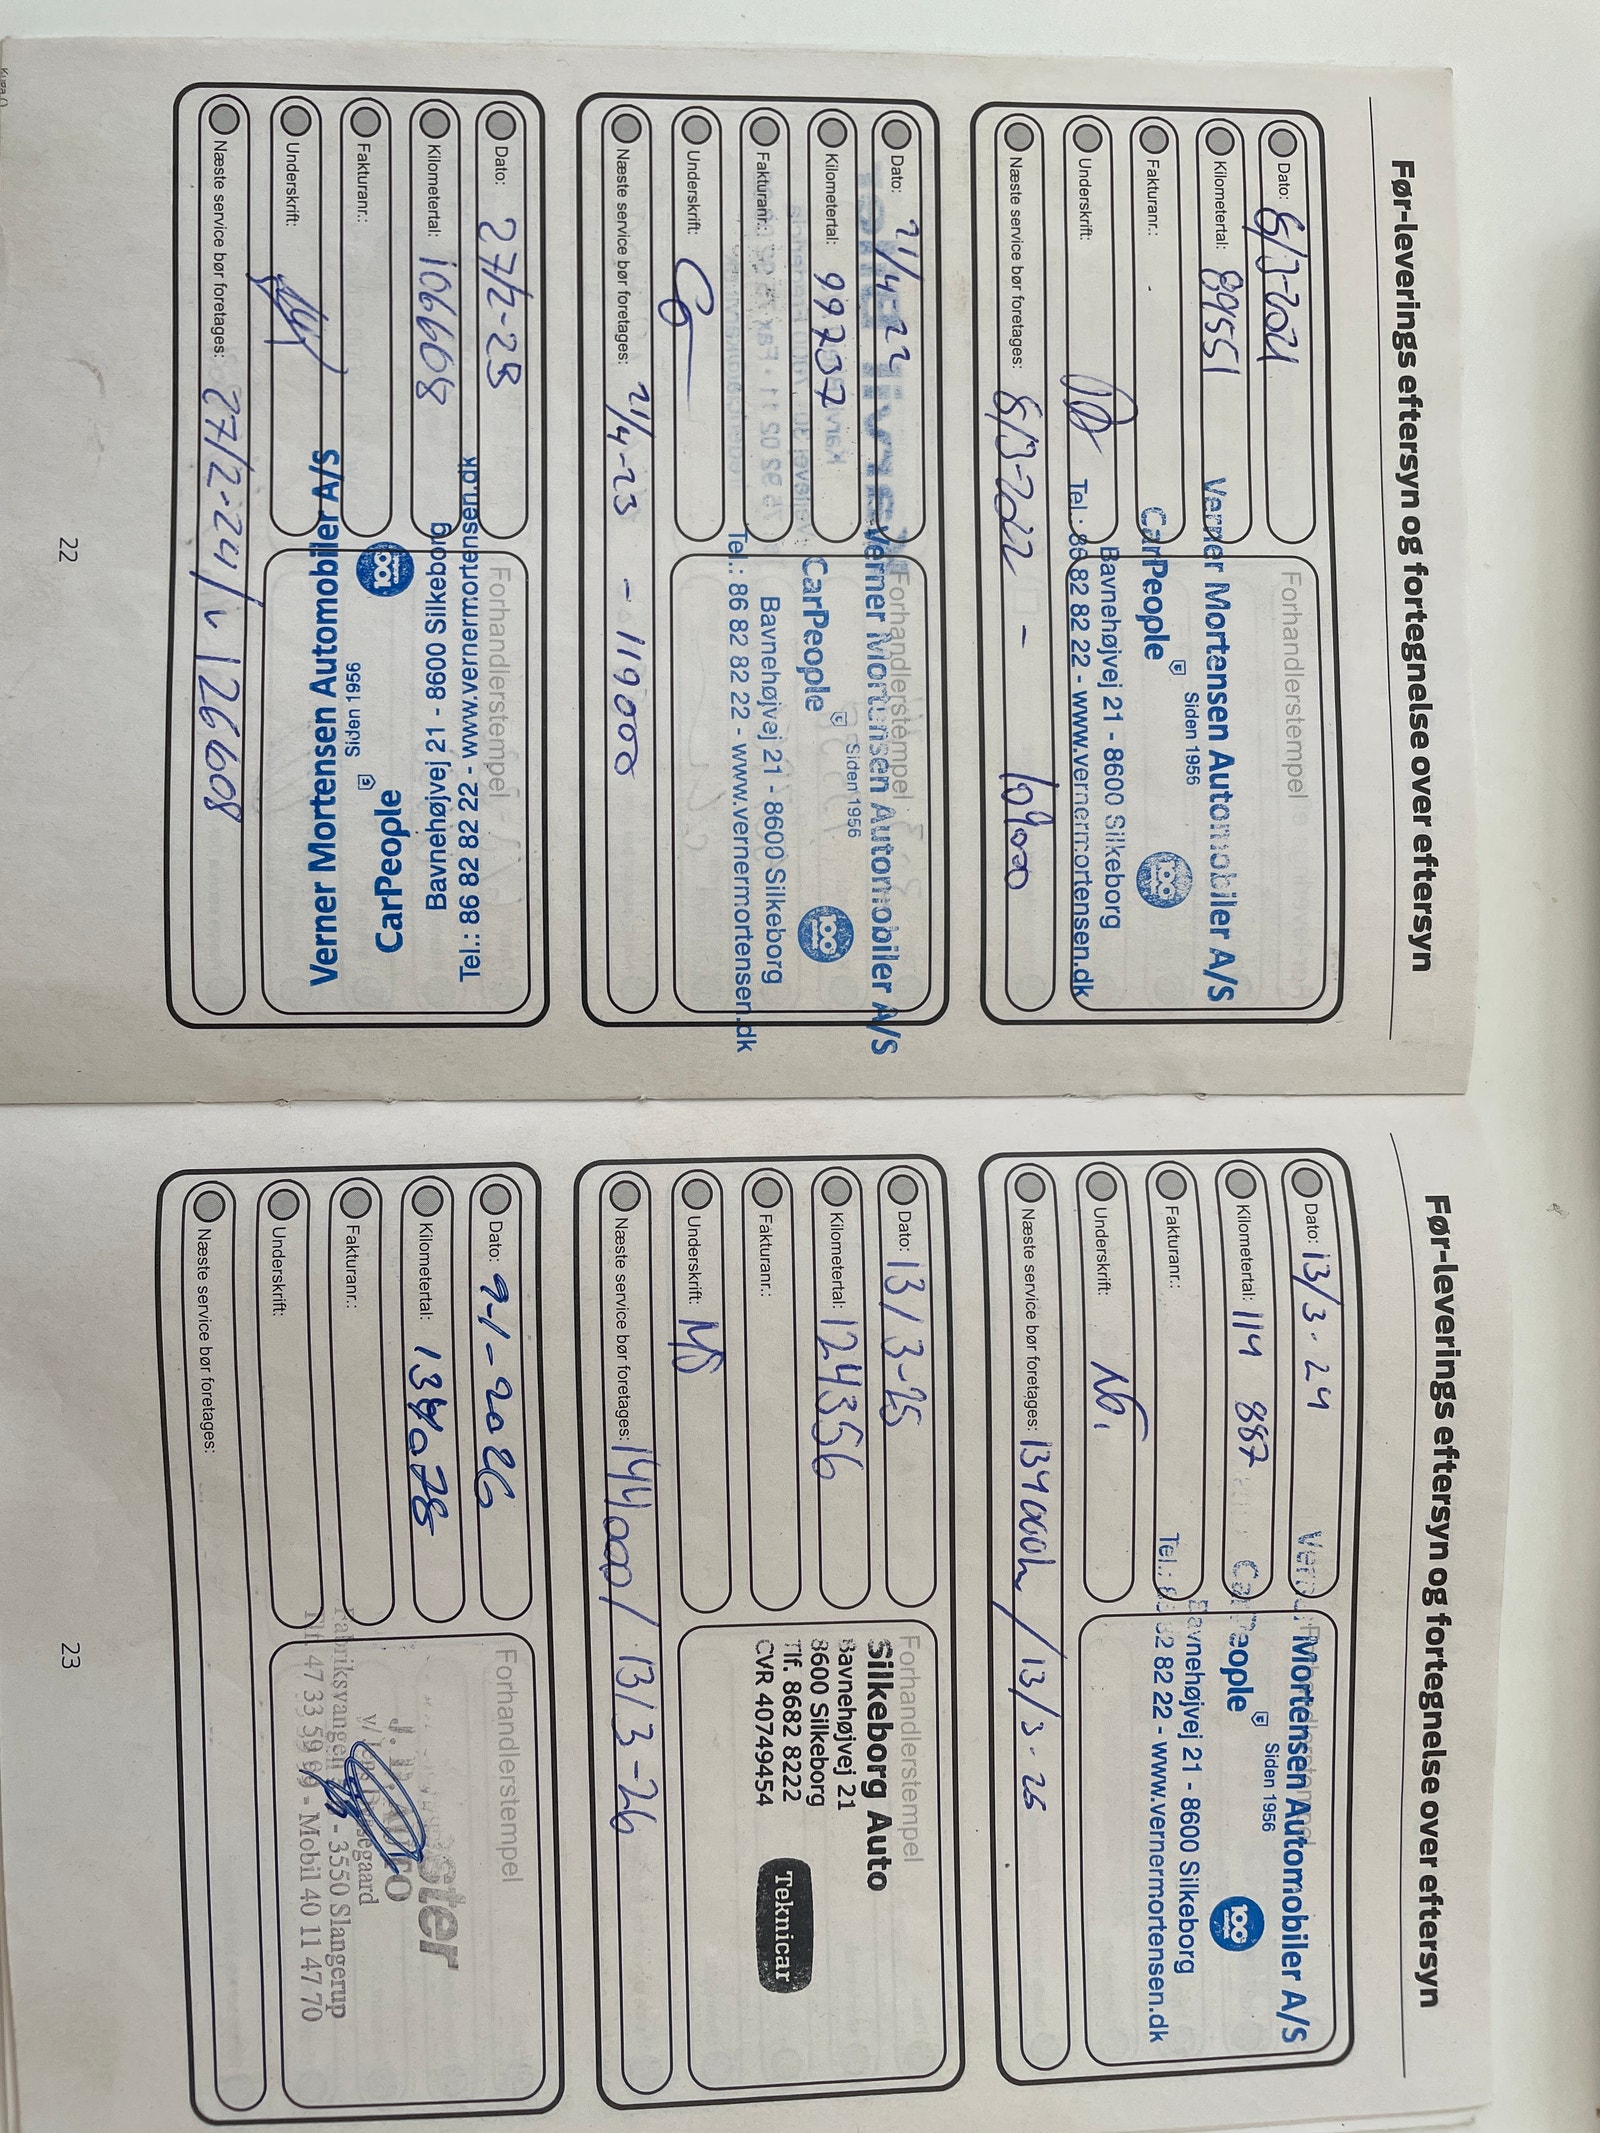 Før-leverings eftersyn og fortegnelse over eftersyn
Dato: 8/3-2021
Kilometertal: 89551
Fakturanr.:
Underskrift:
Næste service bør foretages: 8/3-2022 - 109000
Forhandlerstempel
Verner Mortensen Automobiler A/S
Siden 1956
CarPeople
100
Bavnehøjvej 21 - 8600 Silkeborg
Tel.: 86 82 82 22 - www.vernermortensen.dk
Dato: 21/4 22
Kilometertal: 99737
Fakturanr.:
Underskrift:
Næste service bør foretages: 21/4-23 - 119000
Forhandlerstempel
Verner Mortensen Automobiler A/S
Siden 1956
CarPeople
100
Bavnehøjvej 21 - 8600 Silkeborg
Tel.: 86 82 82 22 - www.vernermortensen.dk
Dato: 27/2-23
Kilometertal: 106608
Fakturanr.:
Underskrift:
Næste service bør foretages: 27/2-24 / v 126608
Forhandlerstempel
Tel.: 86 82 82 22 - www.vernermortensen.dk
Bavnehøjvej 21 - 8600 Silkeborg
100
CarPeople
Siden 1956
Verner Mortensen Automobiler A/S
22
Før-leverings eftersyn og fortegnelse over eftersyn
Dato: 13/3-24
Kilometertal: 114 887
Fakturanr.:
Underskrift:
Næste service bør foretages: 134000km / 13/3-25
Verner Mortensen Automobiler A/S
Siden 1956
CarPeople
100
Bavnehøjvej 21 - 8600 Silkeborg
Tel.: 86 82 82 22 - www.vernermortensen.dk
Dato: 13/3-25
Kilometertal: 124356
Fakturanr.:
Underskrift: MS
Næste service bør foretages: 144000 / 13/3-26
Forhandlerstempel
Silkeborg Auto
Bavnehøjvej 21
8600 Silkeborg
Tlf. 8682 8222
CVR 40749454
Teknicar
Dato: 9-1-2026
Kilometertal:
Fakturanr.:
Underskrift:
Næste service bør foretages:
Forhandlerstempel
Fabriksvangen - 3550 Slangerup
Tlf. 47 33 59 69 - Mobil 40 11 47 70
23